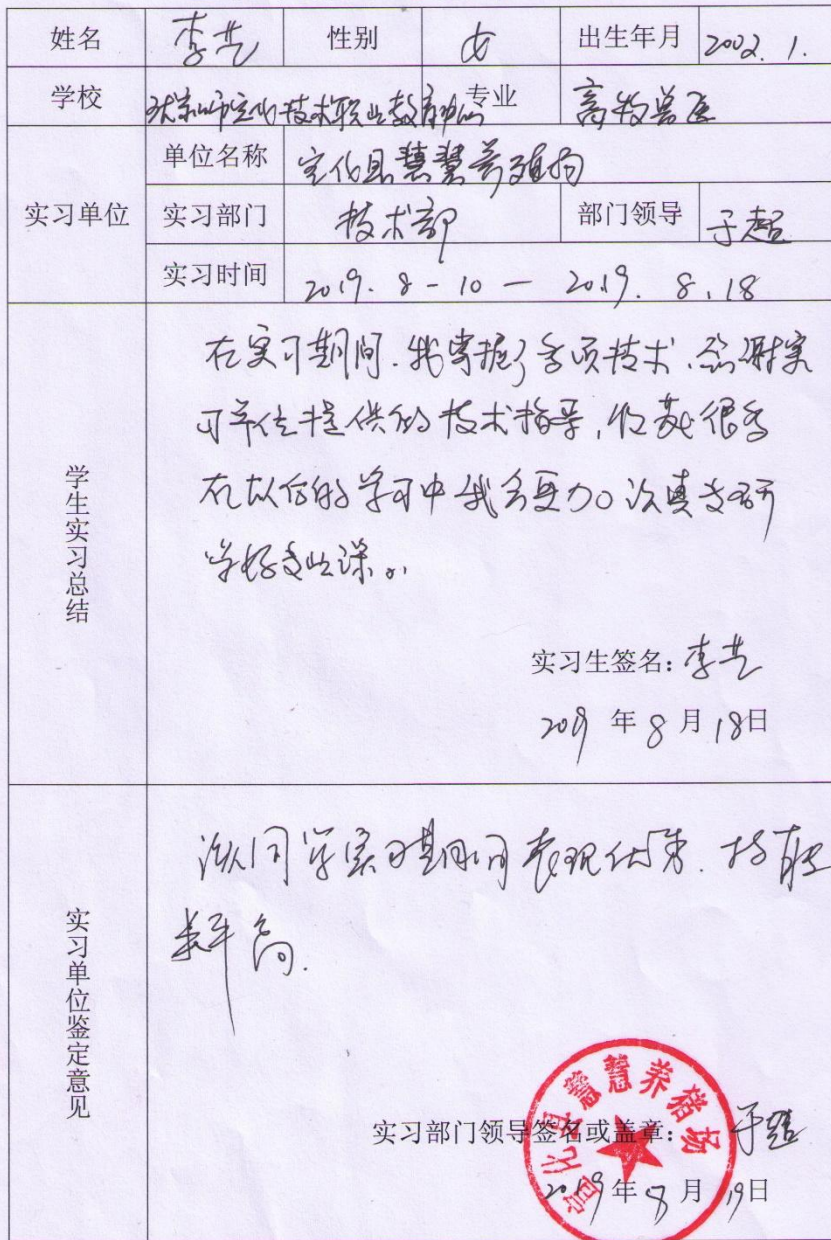 姓名 李艺 性别 女 出生年月 2002.1.
学校 张家口市宣化技术职业教育中心 专业 畜牧兽医
单位名称 宣化县慧慧养殖场
实习单位 实习部门 技术部 部门领导 于超
实习时间 2019.8-10—2019.8.18
学生实习总结
在实习期间.我掌握了多项技术.感谢实
习单位提供的技术指导,收获很多
在以后的学习中我会更加认真专研
学好专业课。
实习生签名:李艺
2019年8月18日
实习单位鉴定意见
该同学实习期间表现优秀.技能
水平高.
实习部门领导签名或盖章:于超
2019年8月19日
宣化县慧慧养猪场